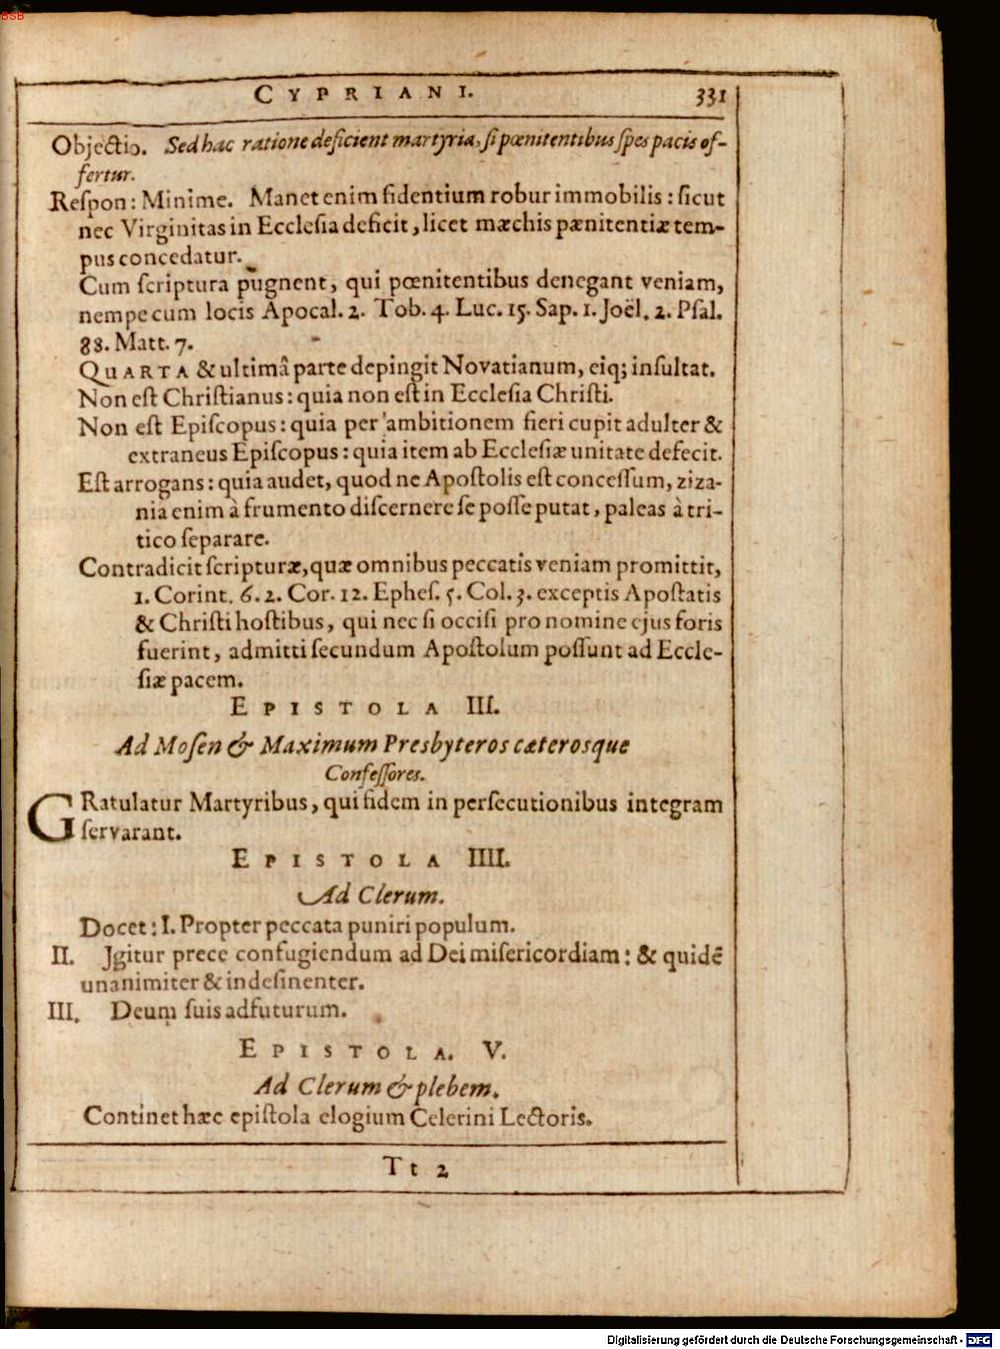 BSB
CYPRIANI. 331
Objectio. Sed hac ratione deficient martyria, si pœnitentibus spes pacis of-
fertur.
Respon: Minime. Manet enim fidentium robur immobilis: sicut
nec Virginitas in Ecclesia deficit, licet mæchis pænitentiæ tem-
pus concedatur.
Cum scriptura pugnent, qui pœnitentibus denegant veniam,
nempe cum locis Apocal. 2. Tob. 4. Luc. 15. Sap. 1. Joël. 2. Psal.
88. Matt. 7.
QUARTA & ultimâ parte depingit Novatianum, eiq; insultat.
Non est Christianus: quia non est in Ecclesia Christi.
Non est Episcopus: quia per ambitionem fieri cupit adulter &
extraneus Episcopus: quia item ab Ecclesiæ unitate defecit.
Est arrogans: quia audet, quod ne Apostolis est concessum, ziza-
nia enim à frumento discernere se posse putat, paleas à tri-
tico separare.
Contradicit scripturæ, quæ omnibus peccatis veniam promittit,
1. Corint. 6. 2. Cor. 12. Ephes. 5. Col. 3. exceptis Apostatis
& Christi hostibus, qui nec si occisi pro nomine ejus foris
fuerint, admitti secundum Apostolum possunt ad Eccle-
siæ pacem.
EPISTOLA III.
Ad Mosen & Maximum Presbyteros cæterosque
Confessores.
GRatulatur Martyribus, qui fidem in persecutionibus integram
servarant.
EPISTOLA IIII.
Ad Clerum.
Docet: I. Propter peccata puniri populum.
II. Jgitur prece confugiendum ad Dei misericordiam: & quidē
unanimiter & indesinenter.
III. Deum suis adfuturum.
EPISTOLA. V.
Ad Clerum & plebem.
Continet hæc epistola elogium Celerini Lectoris.
Tt 2
Digitalisierung gefördert durch die Deutsche Forschungsgemeinschaft - DFG